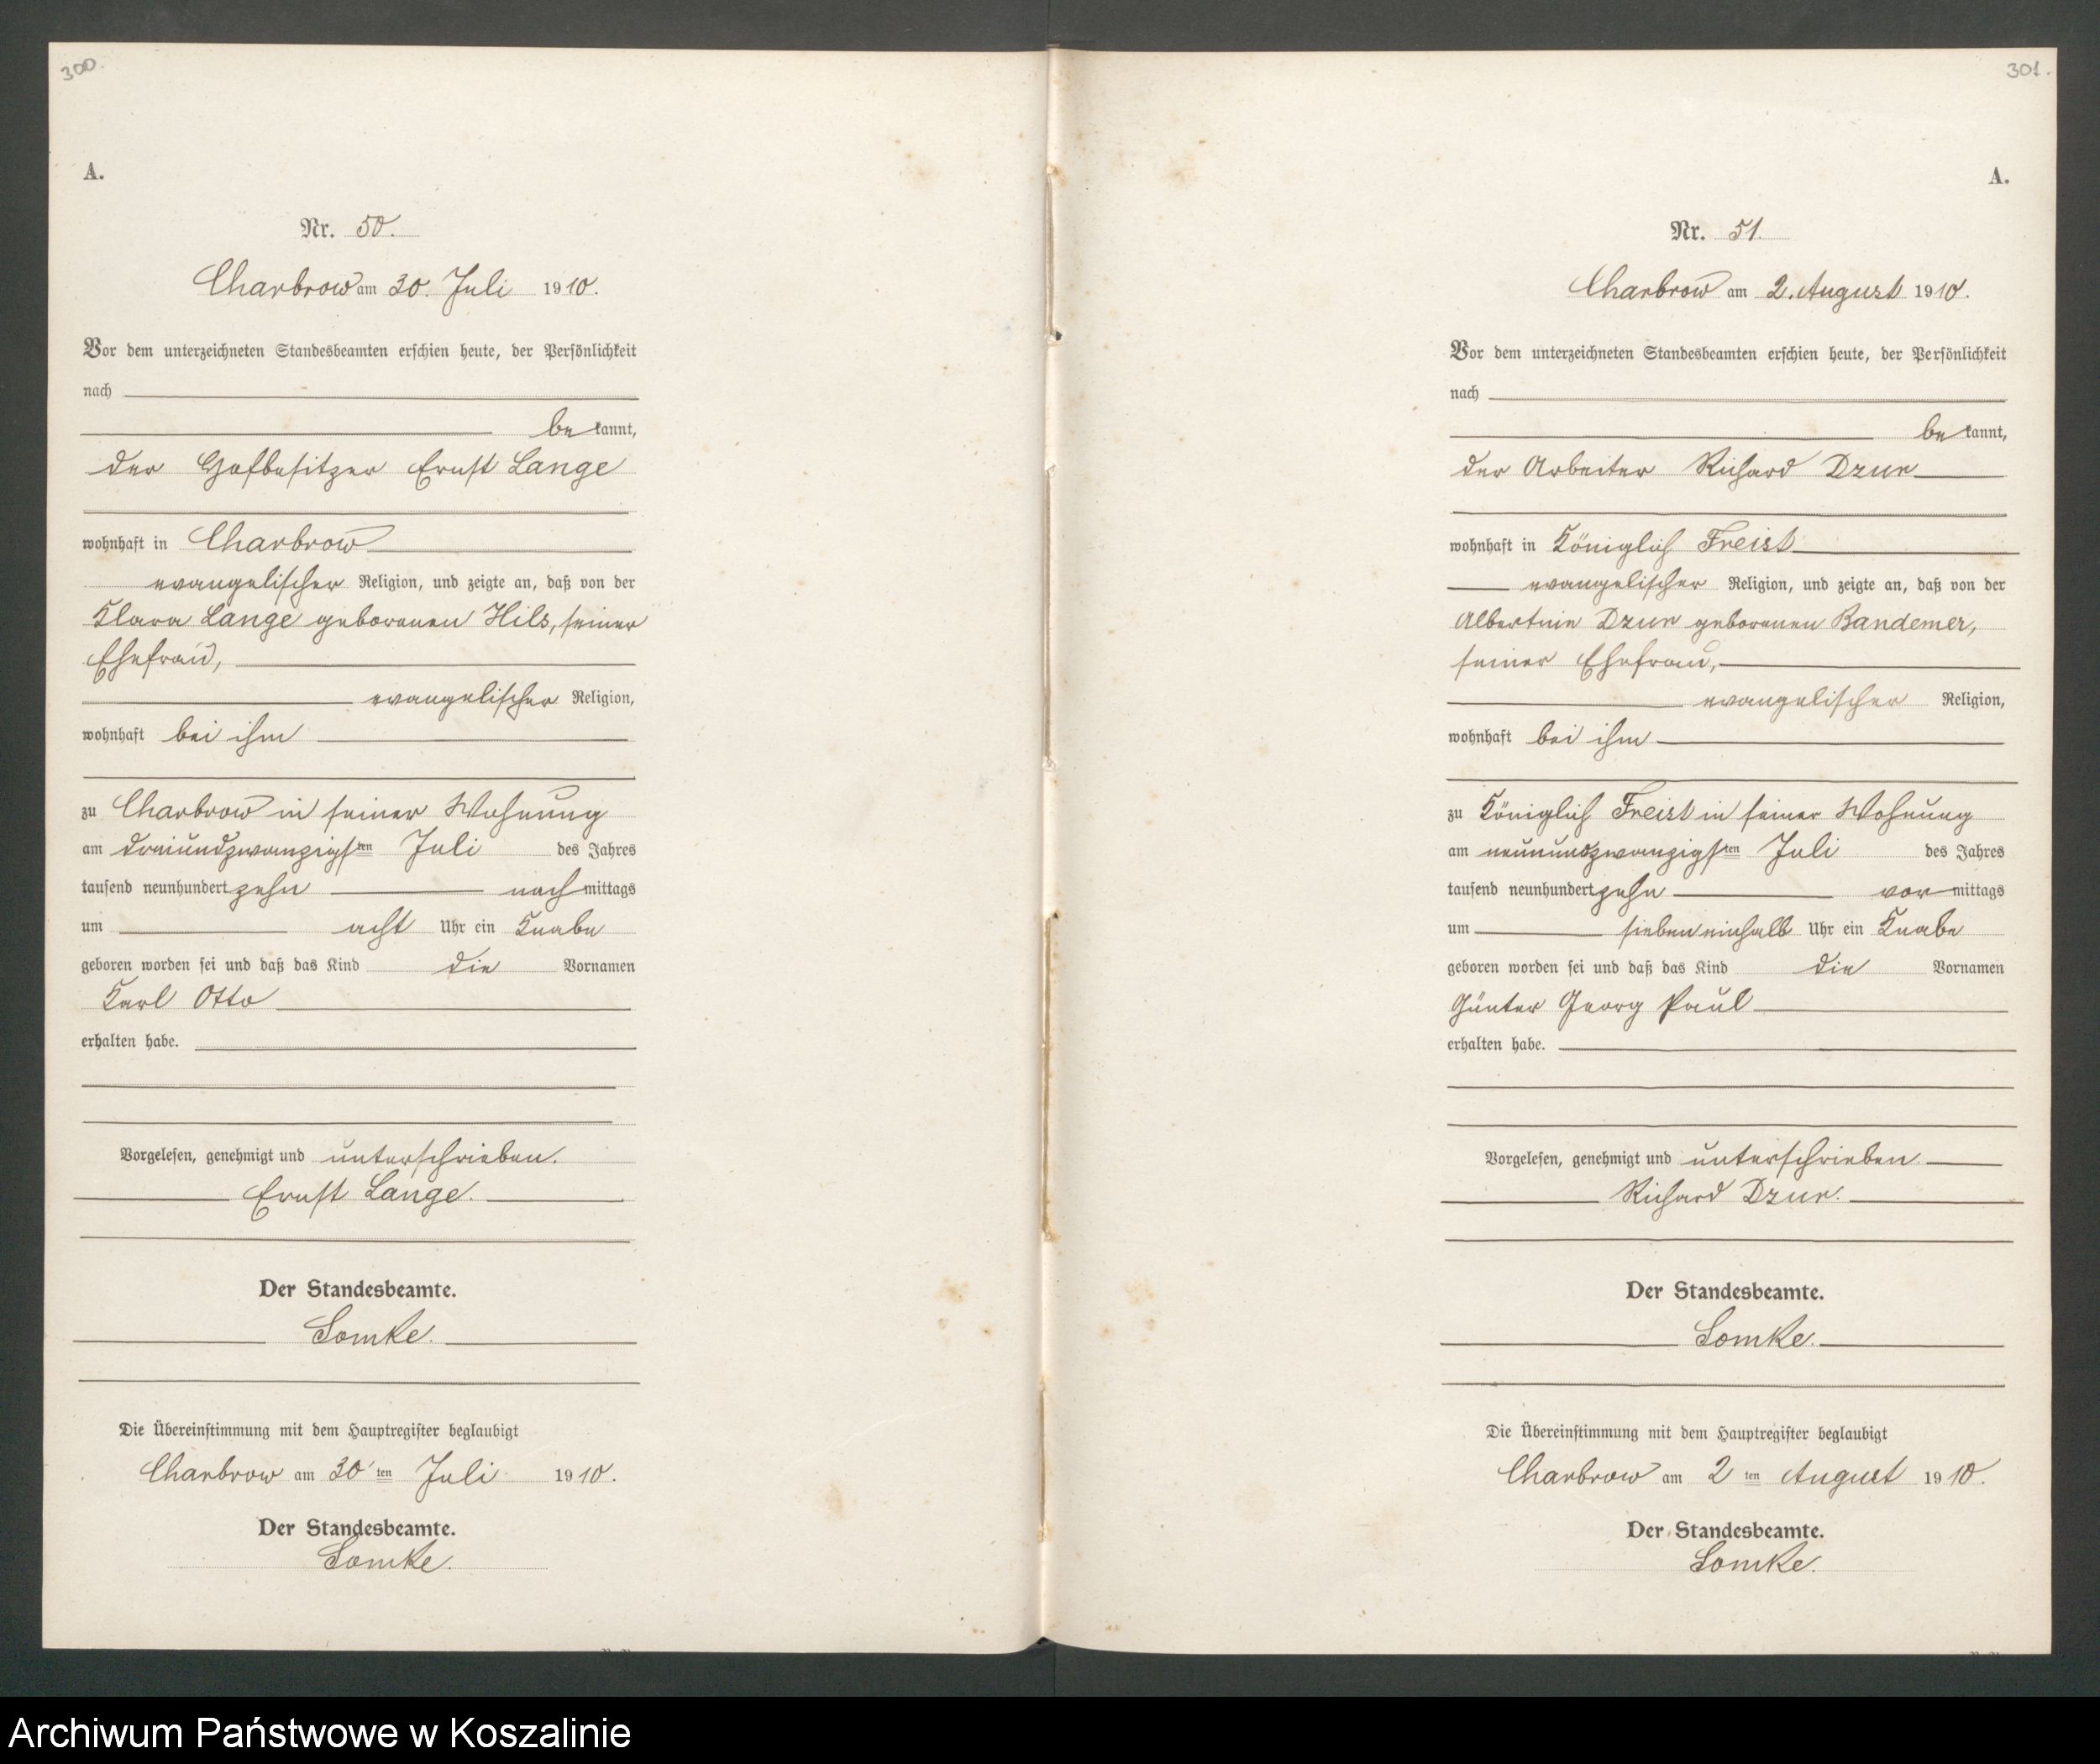 300.
A.
Nr. 50.
Charbrow am 30. Juli 1910.
Vor dem unterzeichneten Standesbeamten erschien heute, der Persönlichkeit
nach
be kannt,
der Hofbesitzer Ernst Lange
wohnhaft in Charbrow
evangelischer Religion, und zeigte an, daß von der
Klara Lange geborenen Hils, seiner
Ehefrau,
evangelischer Religion,
wohnhaft bei ihm
zu Charbrow in seiner Wohnung
am dreiundzwanzigsten Juli des Jahres
tausend neunhundert zehn nach mittags
um acht Uhr ein Knabe
geboren worden sei und daß das Kind die Vornamen
Karl Otto
erhalten habe.
Vorgelesen, genehmigt und unterschrieben.
Ernst Lange.
Der Standesbeamte.
Lomke.
Die Übereinstimmung mit dem Hauptregister beglaubigt
Charbrow am 30 ten Juli 1910.
Der Standesbeamte.
Lomke.
301.
A.
Nr. 51.
Charbrow am 2. August 1910.
Vor dem unterzeichneten Standesbeamten erschien heute, der Persönlichkeit
nach
be kannt,
der Arbeiter Richard Dzur
wohnhaft in Königlich Freist
evangelischer Religion, und zeigte an, daß von der
Albertine Dzur geborenen Bandemer,
seiner Ehefrau,
evangelischer Religion,
wohnhaft bei ihm
zu Königlich Freist in seiner Wohnung
am neunundzwanzigsten Juli des Jahres
tausend neunhundert zehn vor mittags
um siebeneinhalb Uhr ein Knabe
geboren worden sei und daß das Kind die Vornamen
Günter Georg Paul
erhalten habe.
Vorgelesen, genehmigt und unterschrieben.
Richard Dzur.
Der Standesbeamte.
Lomke.
Die Übereinstimmung mit dem Hauptregister beglaubigt
Charbrow am 2 ten August 1910.
Der Standesbeamte.
Lomke.
Archiwum Państwowe w Koszalinie